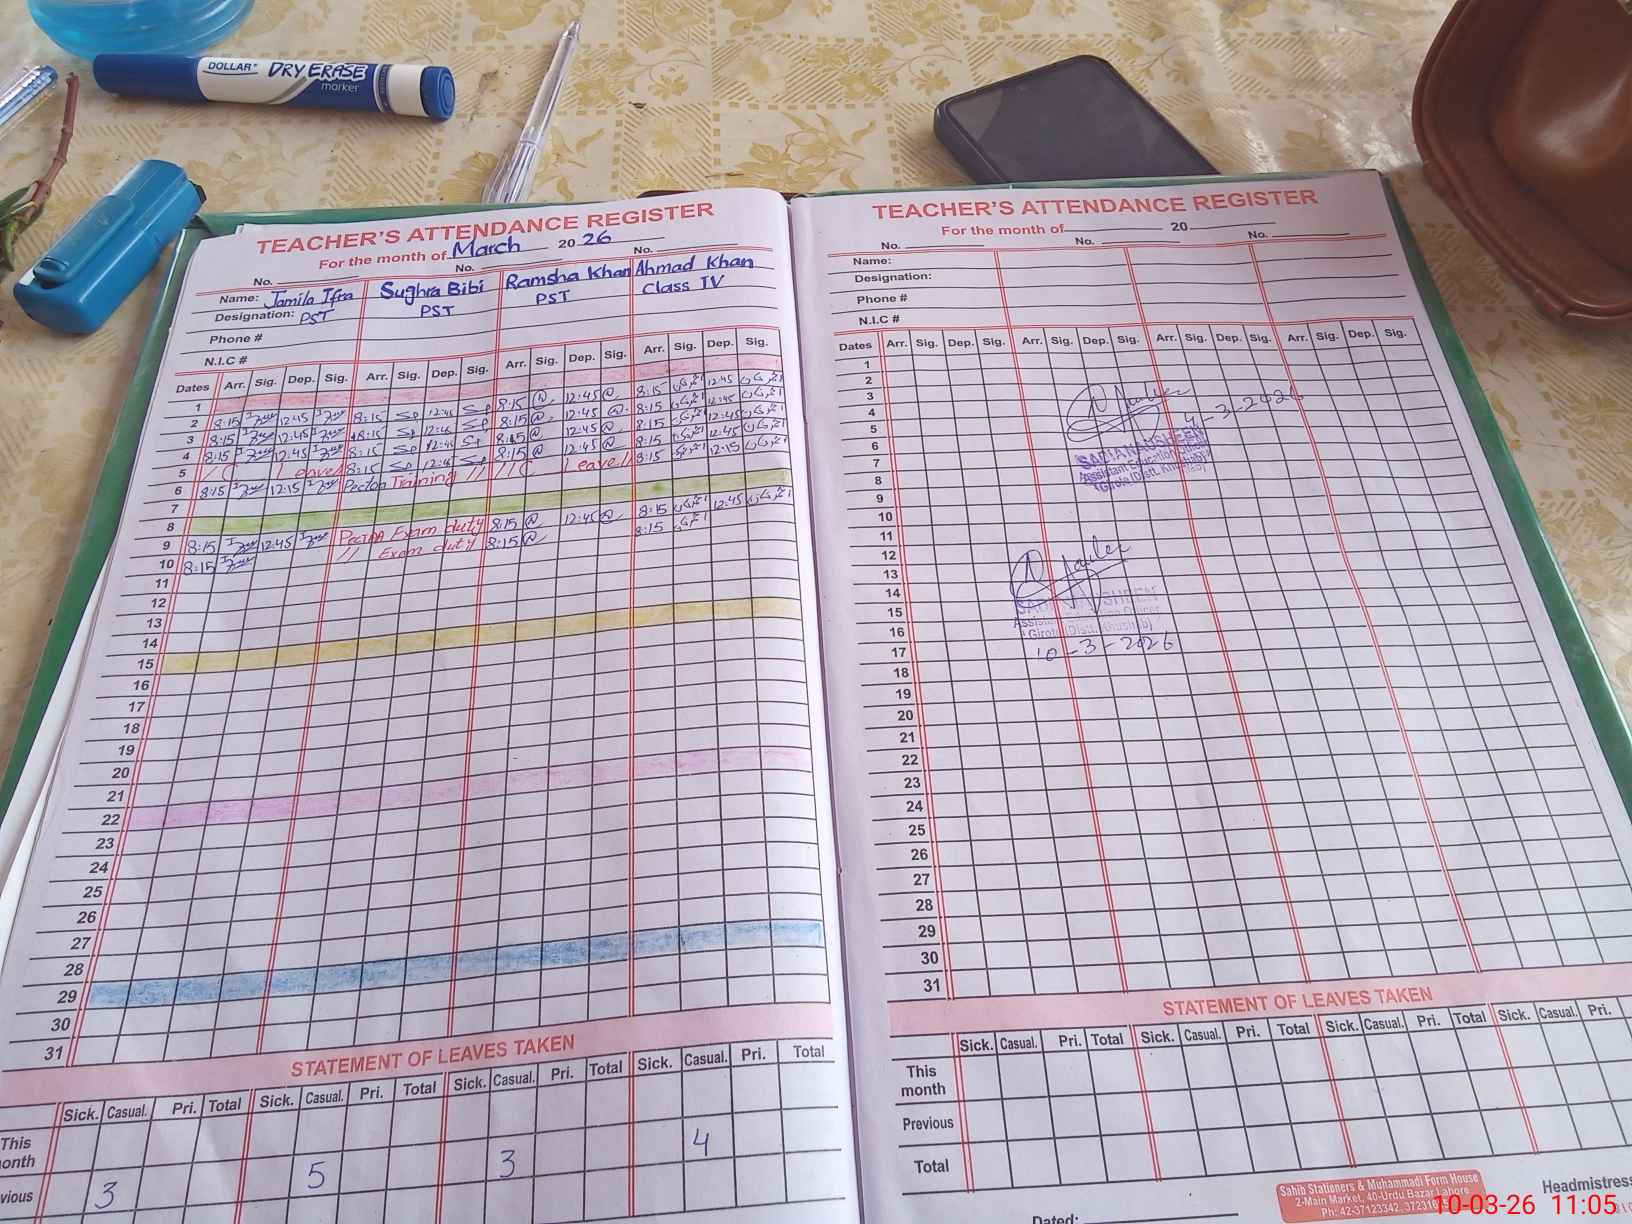 DOLLAR DRY ERASE
marker
TEACHER'S ATTENDANCE REGISTER
For the month of March 20 26
No. No. No.
Name: Jamila Ifra Sughra Bibi Ramsha Khan Ahmad Khan
Designation: PST PST PST Class IV
Phone #
N.I.C #
Dates Arr. Sig. Dep. Sig. Arr. Sig. Dep. Sig. Arr. Sig. Dep. Sig. Arr. Sig. Dep. Sig.
1
2 8:15 12:45 8:15 12:45 8:15 12:45 8:15 12:45
3 8:15 12:45 8:15 12:45 8:15 12:45 8:15 12:45
4 8:15 12:45 8:15 12:45 8:15 12:45 8:15 12:45
5 Leave 8:15 12:45 8:15 12:45 8:15 12:45
6 8:15 12:15 Training // Leave 8:15 12:15
7
8
9 8:15 12:45 Exam duty 8:15 12:45 8:15 12:45
10 8:15 // Exam duty 8:15 8:15
11
12
13
14
15
16
17
18
19
20
21
22
23
24
25
26
27
28
29
30
31
STATEMENT OF LEAVES TAKEN
Sick. Casual. Pri. Total Sick. Casual. Pri. Total Sick. Casual. Pri. Total Sick. Casual. Pri. Total
This
onth
vious 3 5 3 4
TEACHER'S ATTENDANCE REGISTER
For the month of 20
No. No. No.
Name:
Designation:
Phone #
N.I.C #
Dates Arr. Sig. Dep. Sig. Arr. Sig. Dep. Sig. Arr. Sig. Dep. Sig. Arr. Sig. Dep. Sig.
1
2
3
4 4-3-2026
5
6
7 Assistant Education Officer
8
9
10
11
12
13
14
15
16
17 10-3-2026
18
19
20
21
22
23
24
25
26
27
28
29
30
31
STATEMENT OF LEAVES TAKEN
Sick. Casual. Pri. Total Sick. Casual. Pri. Total Sick. Casual. Pri. Total Sick. Casual. Pri.
This
month
Previous
Total
Sahib Stationers & Muhammadi Form House
2-Main Market, 40-Urdu Bazar Lahore
Ph: 42-37123342,
Headmistress
Dated:
10-03-26 11:05